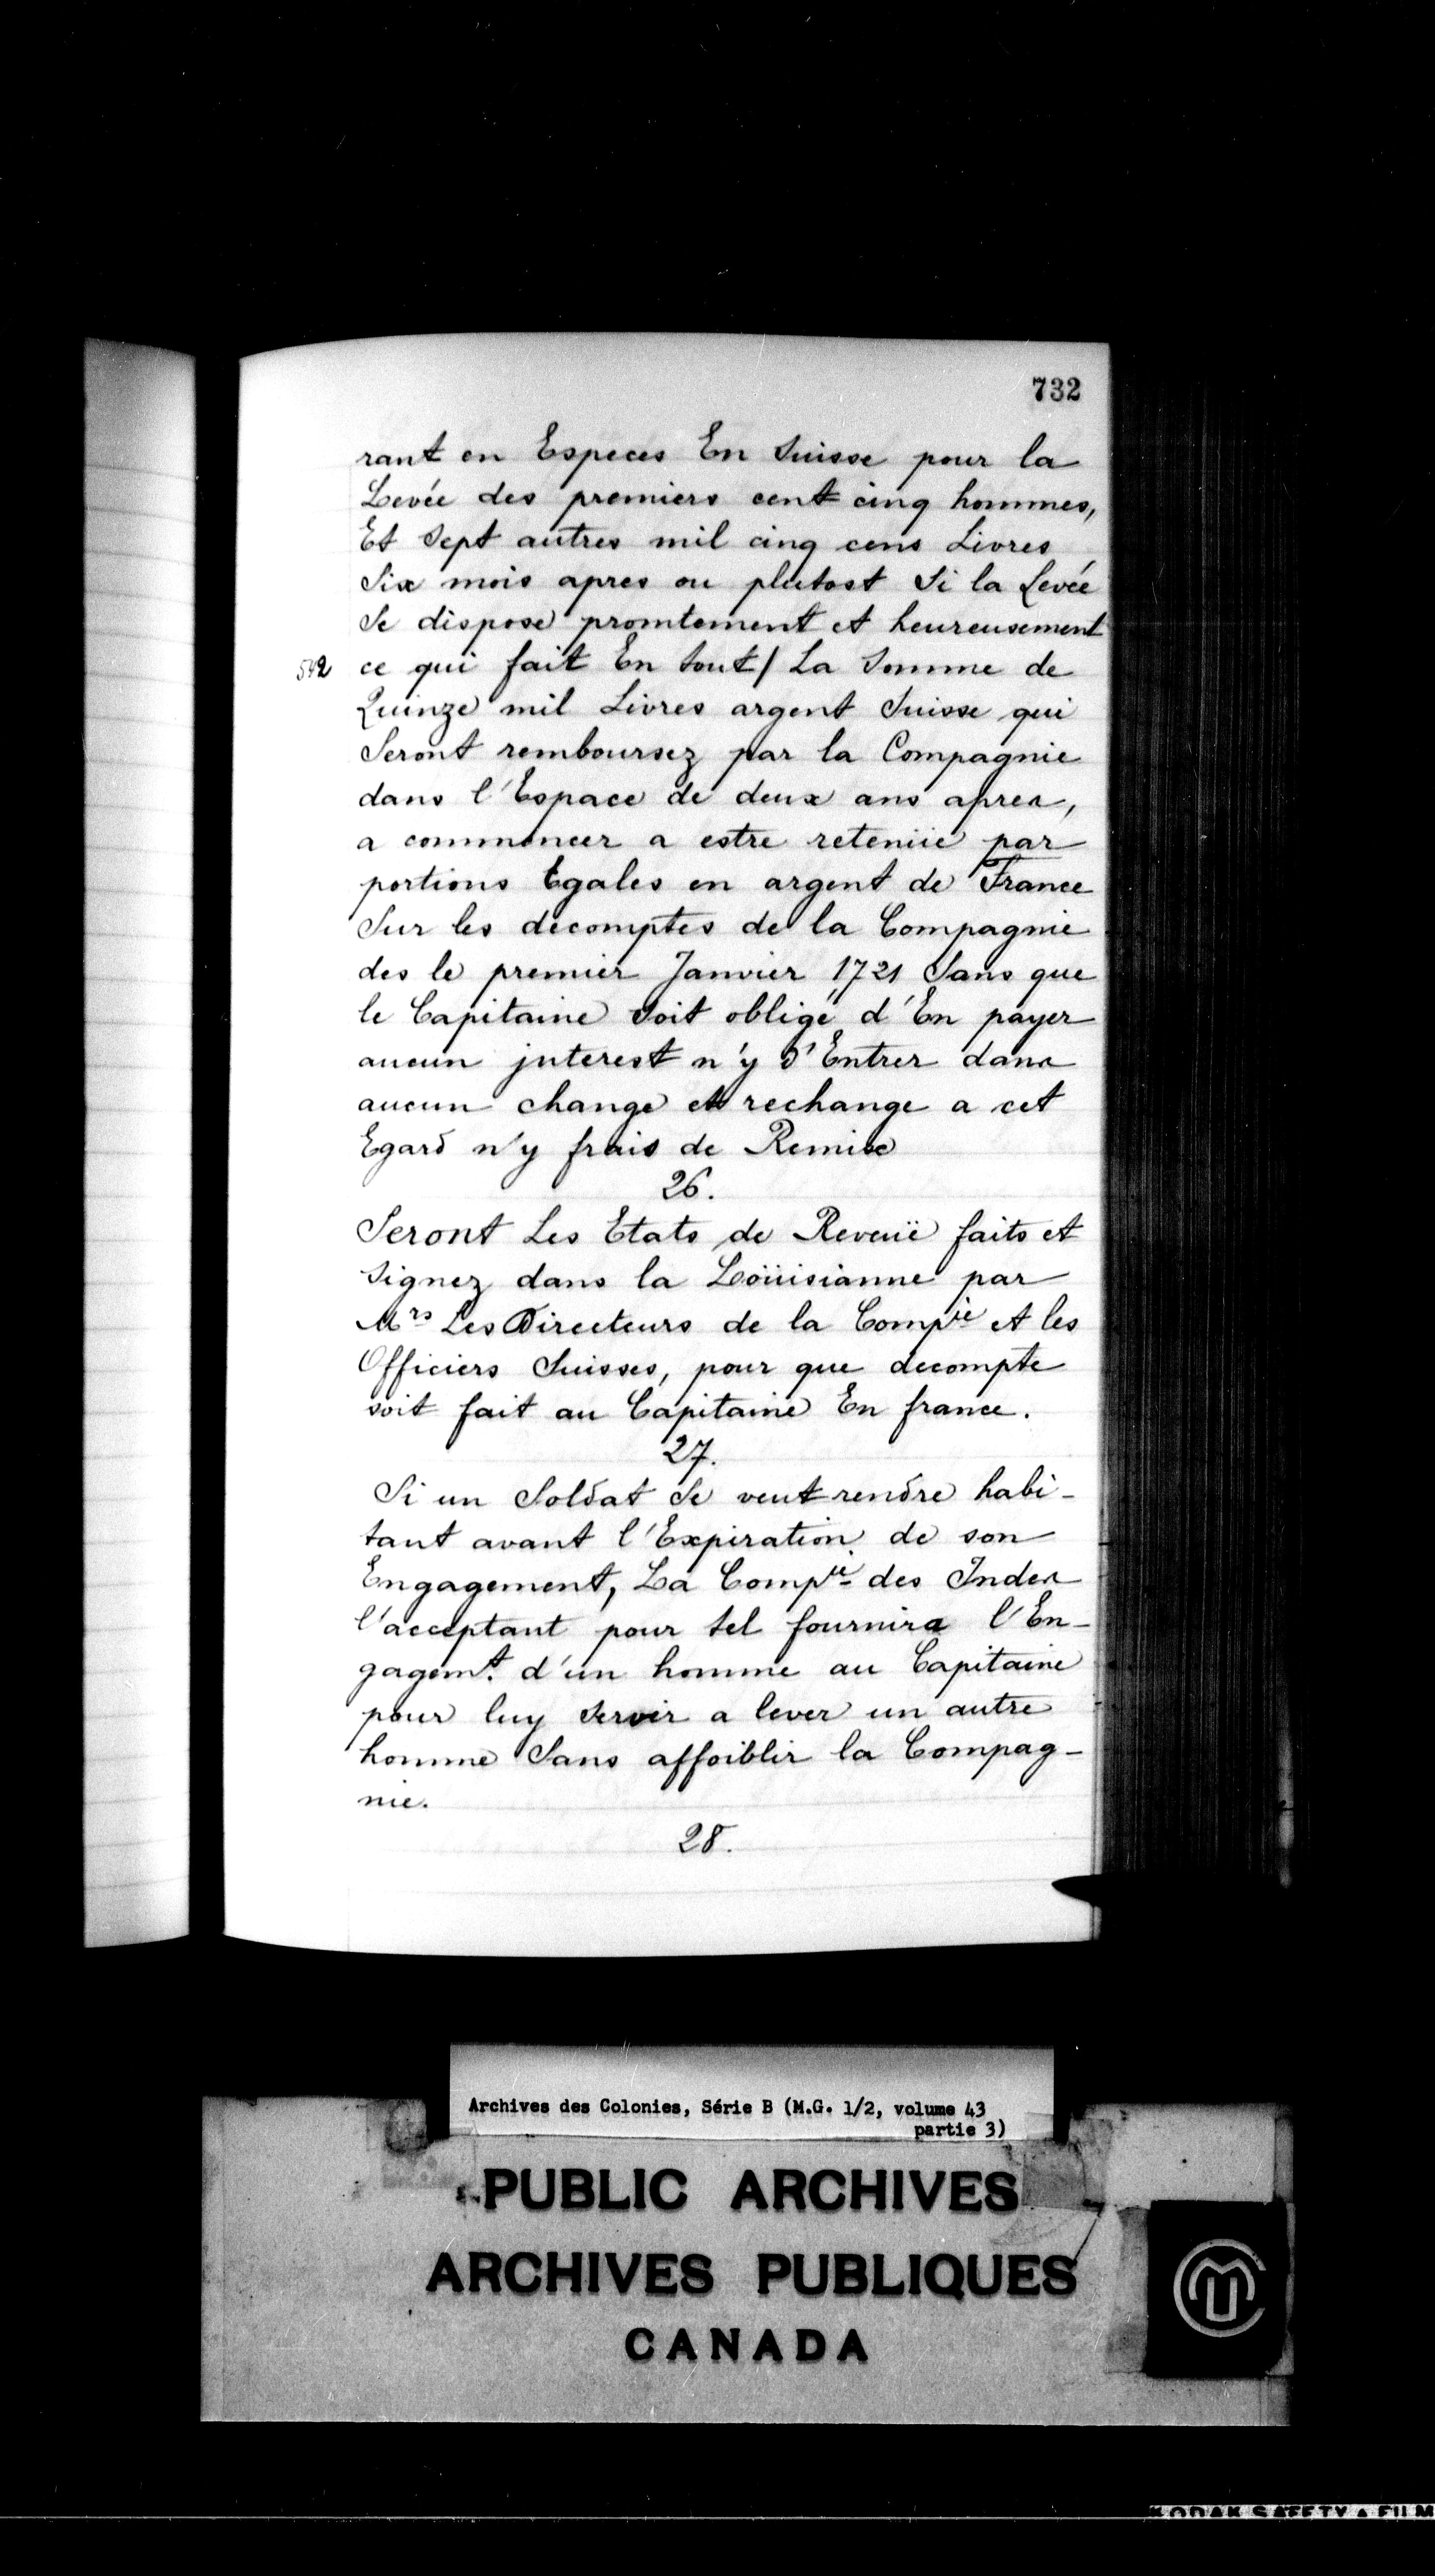 732
rant en Especes En Suisse pour la
Levée des premiers cent cinq hommes,
Et Sept autres mil cinq cens Livres
Six mois apres ou plutost Si la Levée
Se dispose promtement et heureusement
592 ce qui fait En tout / La Somme de
Quinze mil Livres argent Suisse qui
Seront remboursez par la Compagnie
dans l'Espace de deux ans apres,
a commencer a estre retenüe par
portions Egales en argent de France
Sur les decomptes de la Compagnie
des le premier Janvier 1721 Sans que
le Capitaine soit obligé d'En payer
aucun jnterest n'y d'Entrer dans
aucun change et rechange a cet
Egard n'y frais de Remise
26.
Seront Les Etats de Reveuë faits et
Signez dans la Loüisianne par
Mrs Les Directeurs de la Compie et les
Officiers Suisses, pour que decompte
soit fait au Capitaine En france.
27.
Si un Soldat Se veut rendre habi-
tant avant l'Expiration de son
Engagement, La Compie des Indes
l'acceptant pour tel fournira l'En-
gagemt. d'un homme au Capitaine
pour luy Servir a lever un autre
homme Sans affoiblir la Compag-
nie.
28.
Archives des Colonies, Série B (M.G. 1/2, volume 43
partie 3)
PUBLIC ARCHIVES
ARCHIVES PUBLIQUES
CANADA
KODAK SAFETY FILM